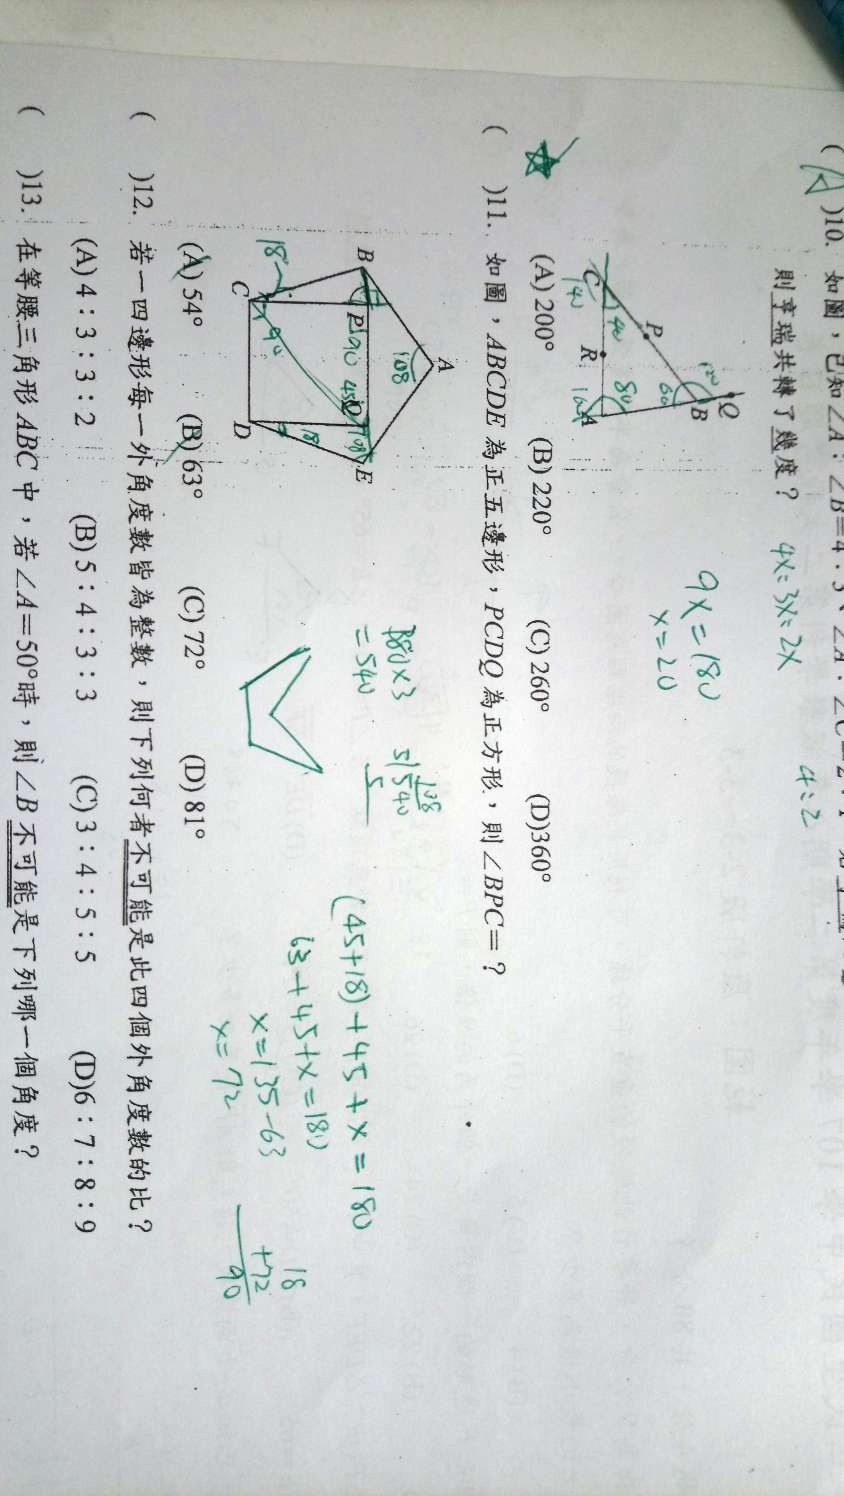 (A)10. 如圖，已知∠A：∠B=4：3、∠A：∠C=2：1
則亨瑞共轉了幾度？ 4x=3x=2x
4:2
9x=180
x=20
Q
120
B
60
P
C
40
140
R
80
100
A
(A) 200° (B) 220° (C) 260° (D)360°
( )11. 如圖，ABCDE 為正五邊形，PCDQ 為正方形，則∠BPC=？
A
108
B
P
90
45
Q
108
E
18
90
18
C
D
180×3
=540
108
5)540
5
(45+18)+45+x=180
63+45+x=180
x=135-63
x=72
18
+72
90
(A) 54° (B) 63° (C) 72° (D) 81°
( )12. 若一四邊形每一外角度數皆為整數，則下列何者不可能是此四個外角度數的比？
(A) 4：3：3：2 (B) 5：4：3：3 (C) 3：4：5：5 (D)6：7：8：9
( )13. 在等腰三角形 ABC 中，若∠A=50°時，則∠B 不可能是下列哪一個角度？